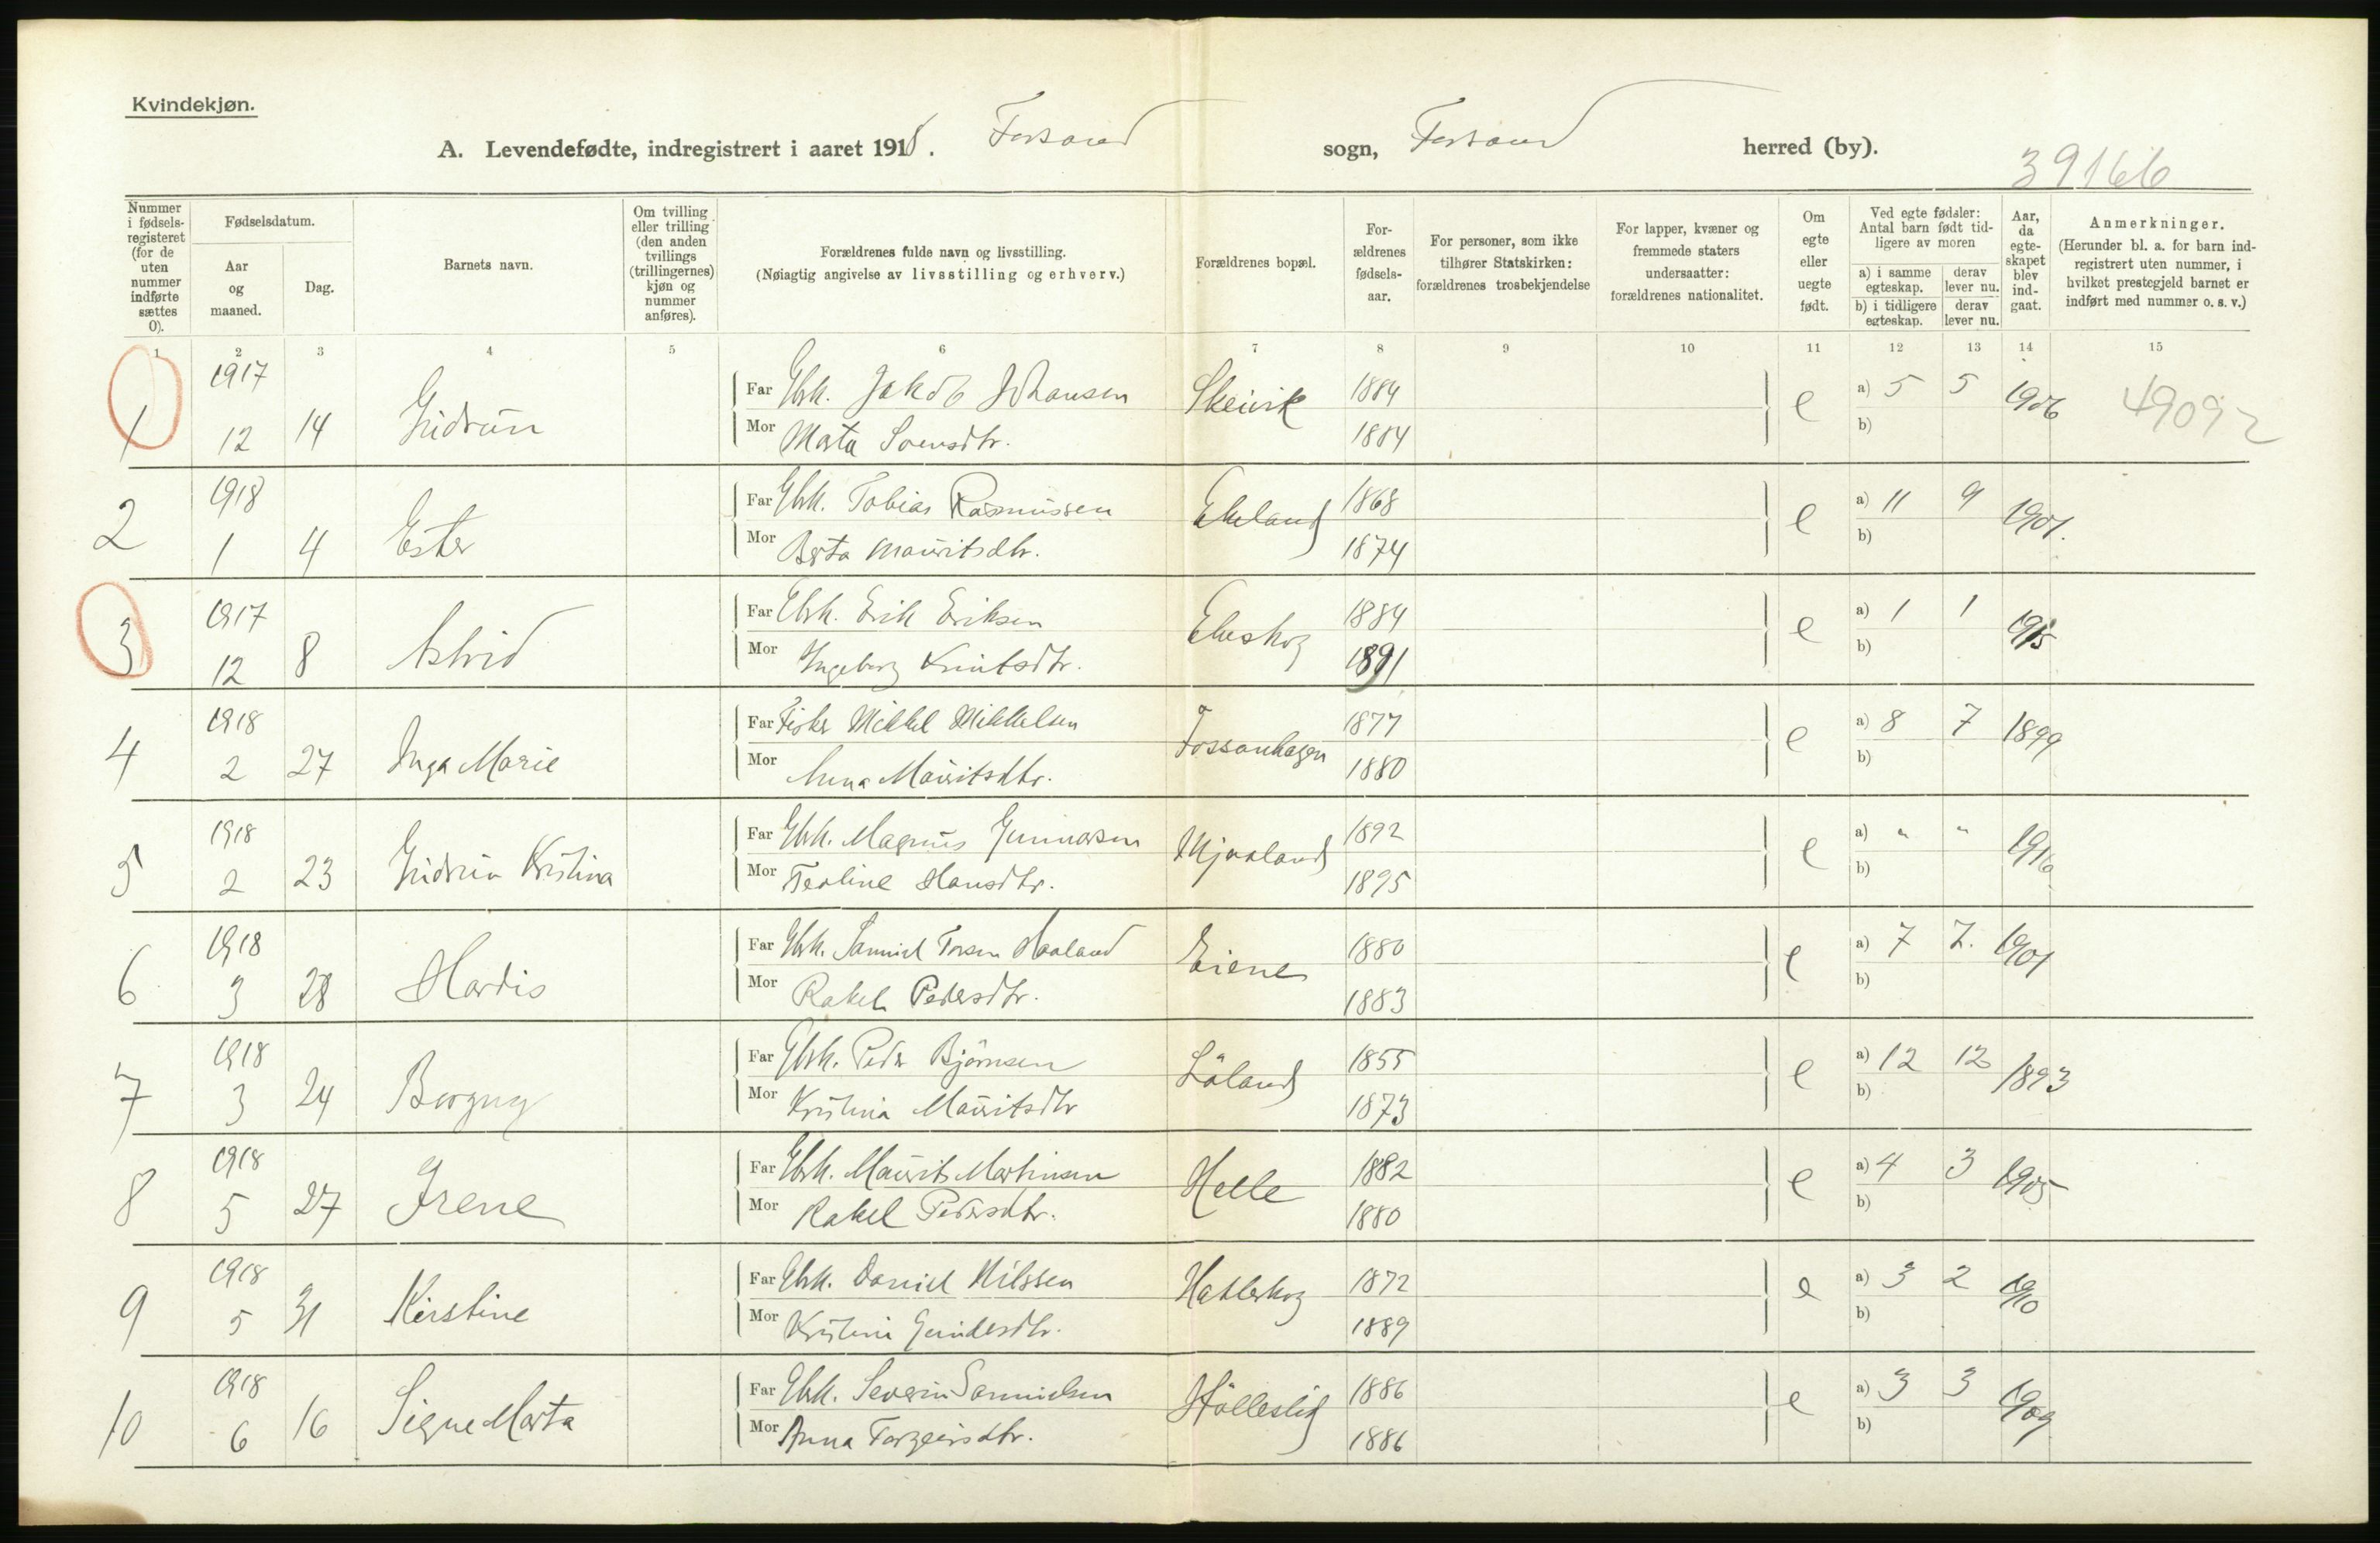 Kvindekjøn.
A. Levendefødte, indregistrert i aaret 1918. Forsand sogn, Forsand herred (by).
39166
Nummer i fødselsregisteret (for de uten nummer indførte sættes 0).
Fødselsdatum.
Aar og maaned.
Dag.
Barnets navn.
Om tvilling eller trilling (den anden tvillings (trillingernes) kjøn og nummer anføres).
Forældrenes fulde navn og livsstilling.
(Nøiagtig angivelse av livsstilling og erhverv.)
Forældrenes bopæl.
Forældrenes fødselsaar.
For personer, som ikke tilhører Statskirken: forældrenes trosbekjendelse
For lapper, kvæner og fremmede staters undersaatter: forældrenes nationalitet.
Om egte eller uegte født.
Ved egte fødsler: Antal barn født tidligere av moren
a) i samme egteskap.
derav lever nu.
b) i tidligere egteskap.
derav lever nu.
Aar, da egteskapet blev indgaat.
Anmerkninger.
(Herunder bl. a. for barn indregistrert uten nummer, i hvilket prestegjeld barnet er indført med nummer o. s. v.)
1 2 3 4 5 6 7 8 9 10 11 12 13 14 15
1 1917 12 14 Gudrun Far Gbk. Jakob Johansen Skeivik 1884 e a) 5 5 1906 49092
Mor Marta Svensdtr. 1884 b)
2 1918 1 4 Ester Far Gbk. Tobias Rasmussen Ekeland 1868 e a) 11 9 1901.
Mor Berta Mauritsdtr. 1874 b)
3 1917 12 8 Astrid Far Gbk. Erik Eriksen Eikeskog 1884 e a) 1 1 1915
Mor Ingeborg Knutsdtr. 1891 b)
4 1918 2 27 Inga Marie Far Fisker Mikkel Mikkelsen Fossanhagen 1877 e a) 8 7 1899
Mor Anna Mauritsdtr. 1880 b)
5 1918 2 23 Gudrun Kristina Far Gbk. Magnus Gunnarsen Mjaaland 1892 e a) " " 1916
Mor Teoline Hansdtr. 1895 b)
6 1918 3 28 Hardis Far Gbk. Samuel Torsen Haaland Eiene 1880 e a) 7 7. 1901
Mor Rakel Pedersdtr. 1883 b)
7 1918 3 24 Borgny Far Gbk. Peder Bjørnsen Löland 1855 e a) 12 12 1893
Mor Kristina Mauritsdtr 1873 b)
8 1918 5 27 Irene Far Gbk. Maurits Martinsen Helle 1882 e a) 4 3 1905
Mor Rakel Pedersdtr. 1880 b)
9 1918 5 31 Kirstine Far Gbk. Daniel Nilssen Hatleskog 1872 e a) 3 2 1910
Mor Kristine Gundersdtr. 1889 b)
10 1918 6 16 Signe Marta Far Gbk. Severin Samuelsen Hölleslid 1886 e a) 3 3 1909
Mor Anna Torgeirsdtr. 1886 b)